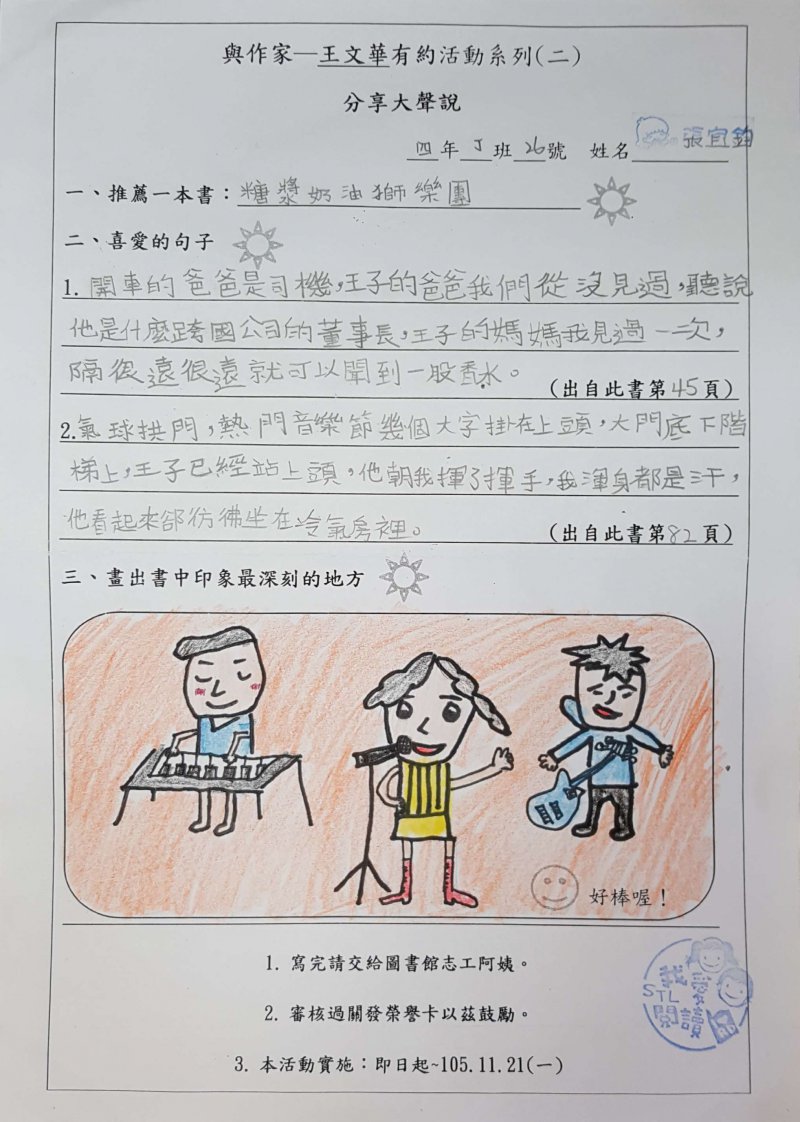 與作家─王文華有約活動系列(二)
分享大聲說
四年J班26號 姓名 張宜鈞
一、推薦一本書：糖漿奶油獅樂團
二、喜愛的句子
1. 開車的爸爸是司機，王子的爸爸我們從沒見過，聽說
他是什麼跨國公司的董事長，王子的媽媽我見過一二次，
隔很遠很遠就可以聞到一股香水。
(出自此書第45頁)
2. 氣球拱門，熱門音樂節幾個大字掛在上頭，大門底下階
梯上，王子已經站上頭，他朝我揮了揮手，我渾身都是汗，
他看起來卻彷彿坐在冷氣房裡。
(出自此書第82頁)
三、畫出書中印象最深刻的地方
好棒喔！
1. 寫完請交給圖書館志工阿姨。
2. 審核過關發榮譽卡以茲鼓勵。
3. 本活動實施：即日起~105.11.21(一)
我愛
STL
閱讀